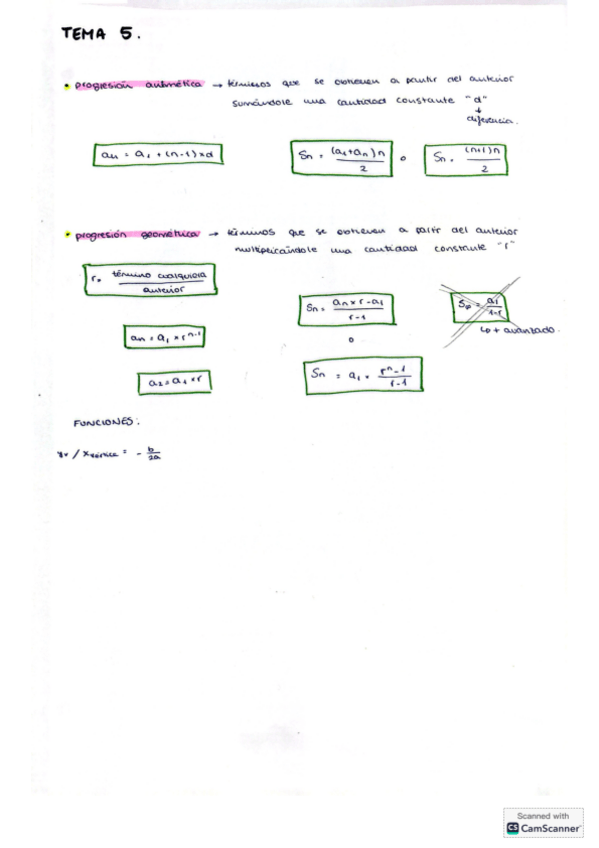 TEMA 5.
• progresión aritmética → términos que se obtienen a partir del anterior
sumándole una cantidad constante "d"
↓
diferencia.
an = a1 + (n-1)×d
Sn = (a1+an)n / 2 o Sn = (n+1)n / 2
• progresión geométrica → términos que se obtienen a partir del anterior
multiplicándole una cantidad constante "r"
r = término cualquiera / anterior
Sn = an×r-a1 / r-1
S∞ = a1 / 1-r
lo + avanzado.
an = a1 × r^n-1
o
a2 = a1 × r
Sn = a1 × r^n-1 / r-1
FUNCIONES:
xv / xvértice = - b / 2a
Scanned with
CS CamScanner